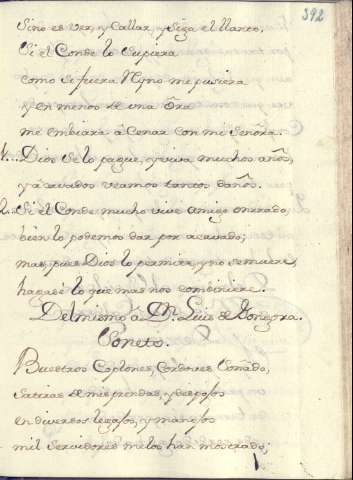 392
Sino es ver, y Callar, y Siga el llanto.
Si el Conde lo Supiera
como si fuera Nyno me pusiera
y en menos de una Ora
me embiara â Cenar con mi Señora.
Dios se lo pague, y viva muchos años,
y acavados veamos tantos daños.
2... Si el Conde mucho vive amigo onrrado,
bien lo podemos dar por acavado;
mas, pues Dios lo permite, y no se muere,
hagase lo que mas nos combiniere.
Del mismo â Dn. Luis de Gongora.
Soneto.
Buestros Coplones, Cordoves Sonado,
Satiras de mis prendas, y despojos
en diversos legajos, y manojos
mil servidores me los han mostrado;